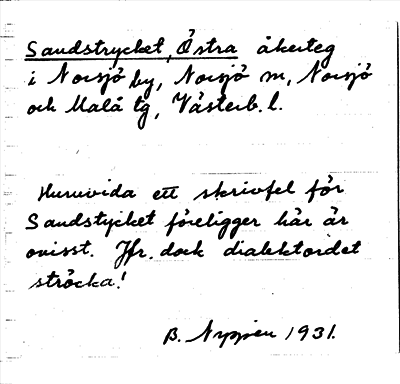 Sandstrycket, Östra åkerteg
i Norsjö by, Norsjö sn, Norsjö
och Malå tg, Västerb. l.
Huruvida ett skrivfel för
Sandstycket föreligger här är
ovisst. Jfr. dock dialektordet
ströcka!
B. 1931.